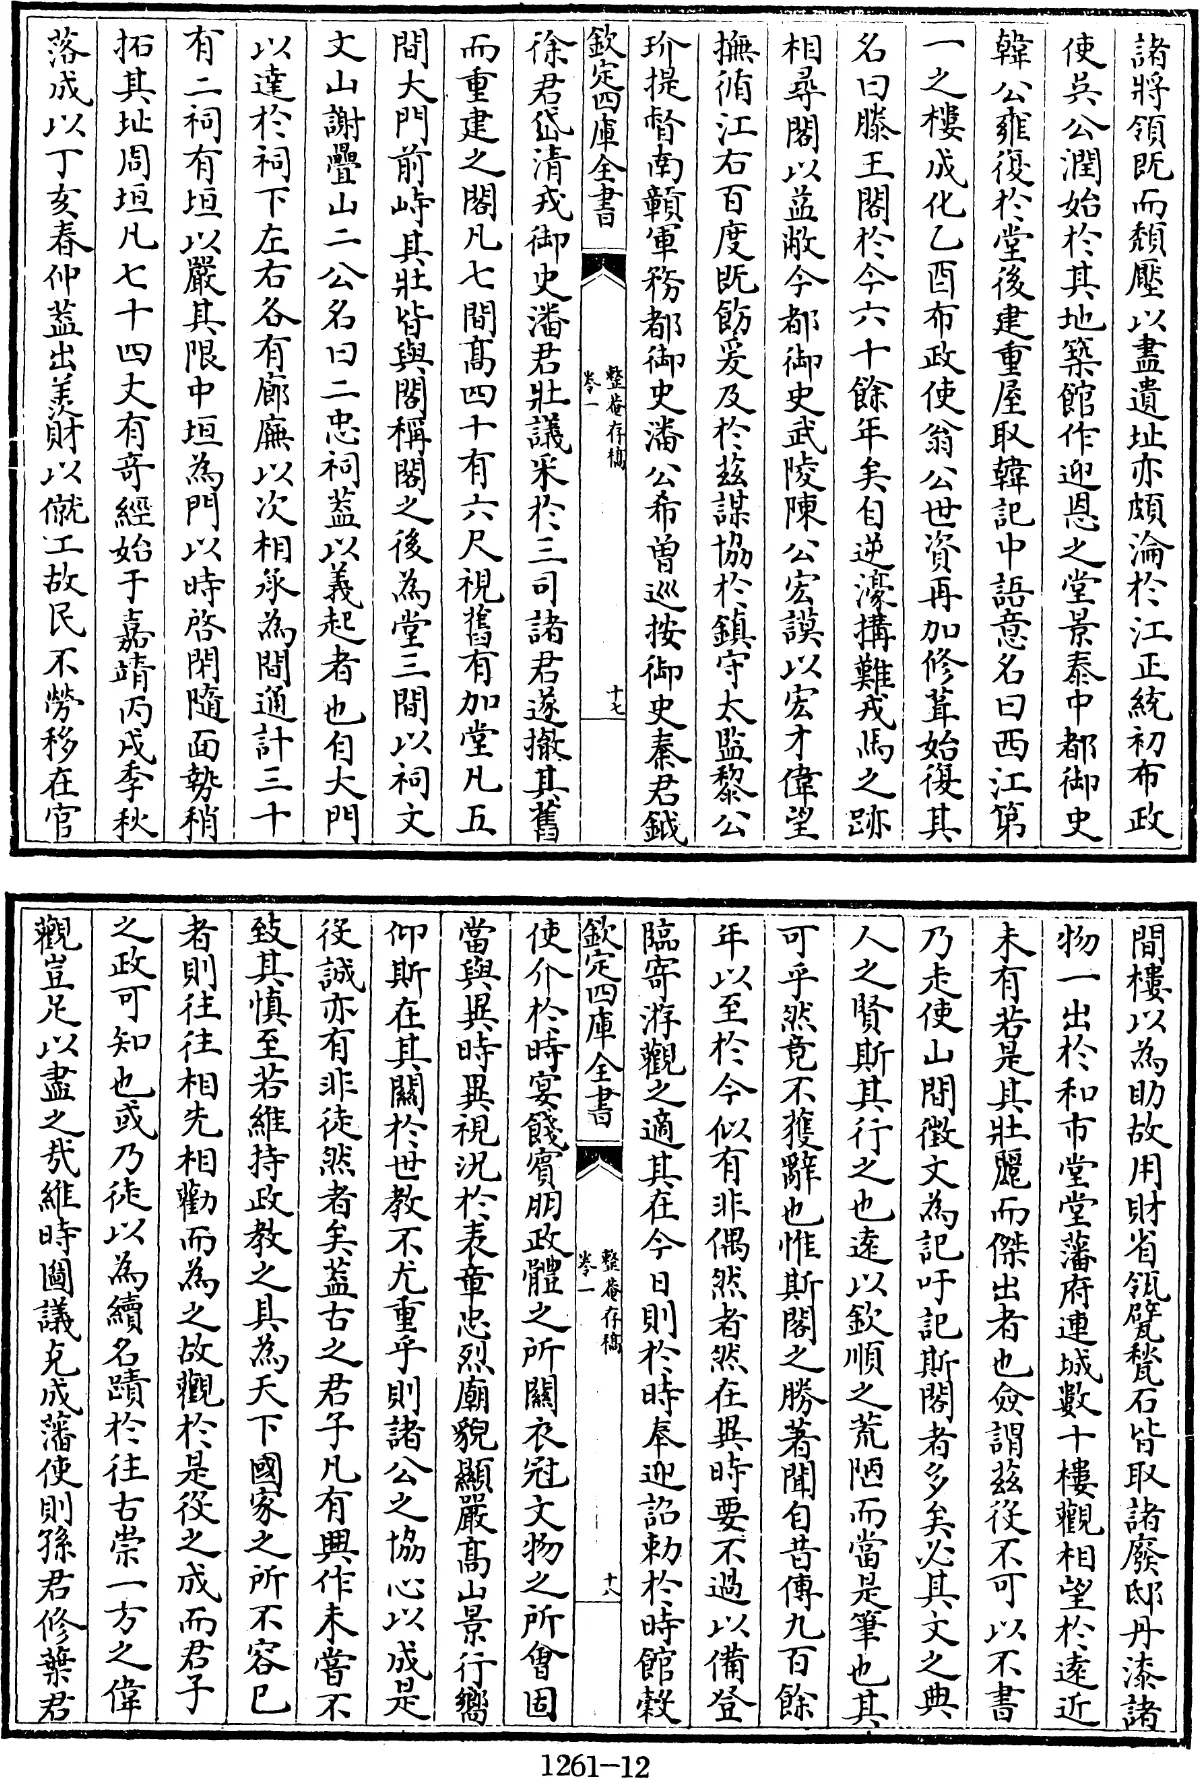 諸將領既而頽壓以盡遺址亦頗淪於江正統初布政
使吳公潤始於其地築館作迎恩之堂景泰中都御史
韓公雍復於堂後建重屋取韓記中語意名曰西江第
一之樓成化乙酉布政使翁公世資再加修葺始復其
名曰滕王閣於今六十餘年矣自逆濠搆難戎馬之跡
相尋閣以益敝今都御史武陵陳公宏謨以宏才偉望
撫循江右百度既飭爰及於兹謀協於鎮守太監黎公
玠提督南贛軍務都御史潘公希曽巡按御史秦君鉞
欽定四庫全書
整菴存稿
卷一
十七
徐君岱清戎御史潘君壯議采於三司諸君遂撤其舊
而重建之閣凡七間髙四十有六尺視舊有加堂凡五
間大門前峙其壯皆與閣稱閣之後為堂三間以祠文
文山謝疊山二公名曰二忠祠葢以義起者也自大門
以達於祠下左右各有廊廡以次相承為間通計三十
有二祠有垣以嚴其限中垣為門以時啓閉隨面勢稍
拓其址周垣凡七十四丈有竒經始于嘉靖丙戌季秋
落成以丁亥春仲葢出羨財以僦工故民不勞移在官
間樓以為助故用財省瓴甓甃石皆取諸廢邸丹漆諸
物一出於和市堂堂藩府連城數十樓觀相望於逺近
未有若是其壯麗而傑出者也僉謂兹役不可以不書
乃走使山間徵文為記吁記斯閣者多矣必其文之典
人之賢斯其行之也逺以欽順之荒陋而當是筆也其
可乎然竟不獲辭也惟斯閣之勝著聞自昔傳九百餘
年以至於今似有非偶然者然在異時要不過以備登
臨寄游觀之適其在今日則於時奉迎詔勅於時館穀
欽定四庫全書
整菴存稿
卷一
十八
使介於時宴餞賓朋政體之所關衣冠文物之所會固
當與異時異視況於表章忠烈廟貌顯嚴髙山景行嚮
仰斯在其關於世教不尤重乎則諸公之協心以成是
役誠亦有非徒然者矣葢古之君子凡有興作未嘗不
致其慎至若維持政教之具為天下國家之所不容已
者則往往相先相勸而為之故觀於是役之成而君子
之政可知也或乃徒以為續名蹟於往古崇一方之偉
觀豈足以盡之哉維時圖議克成藩使則孫君修葉君
1261-12